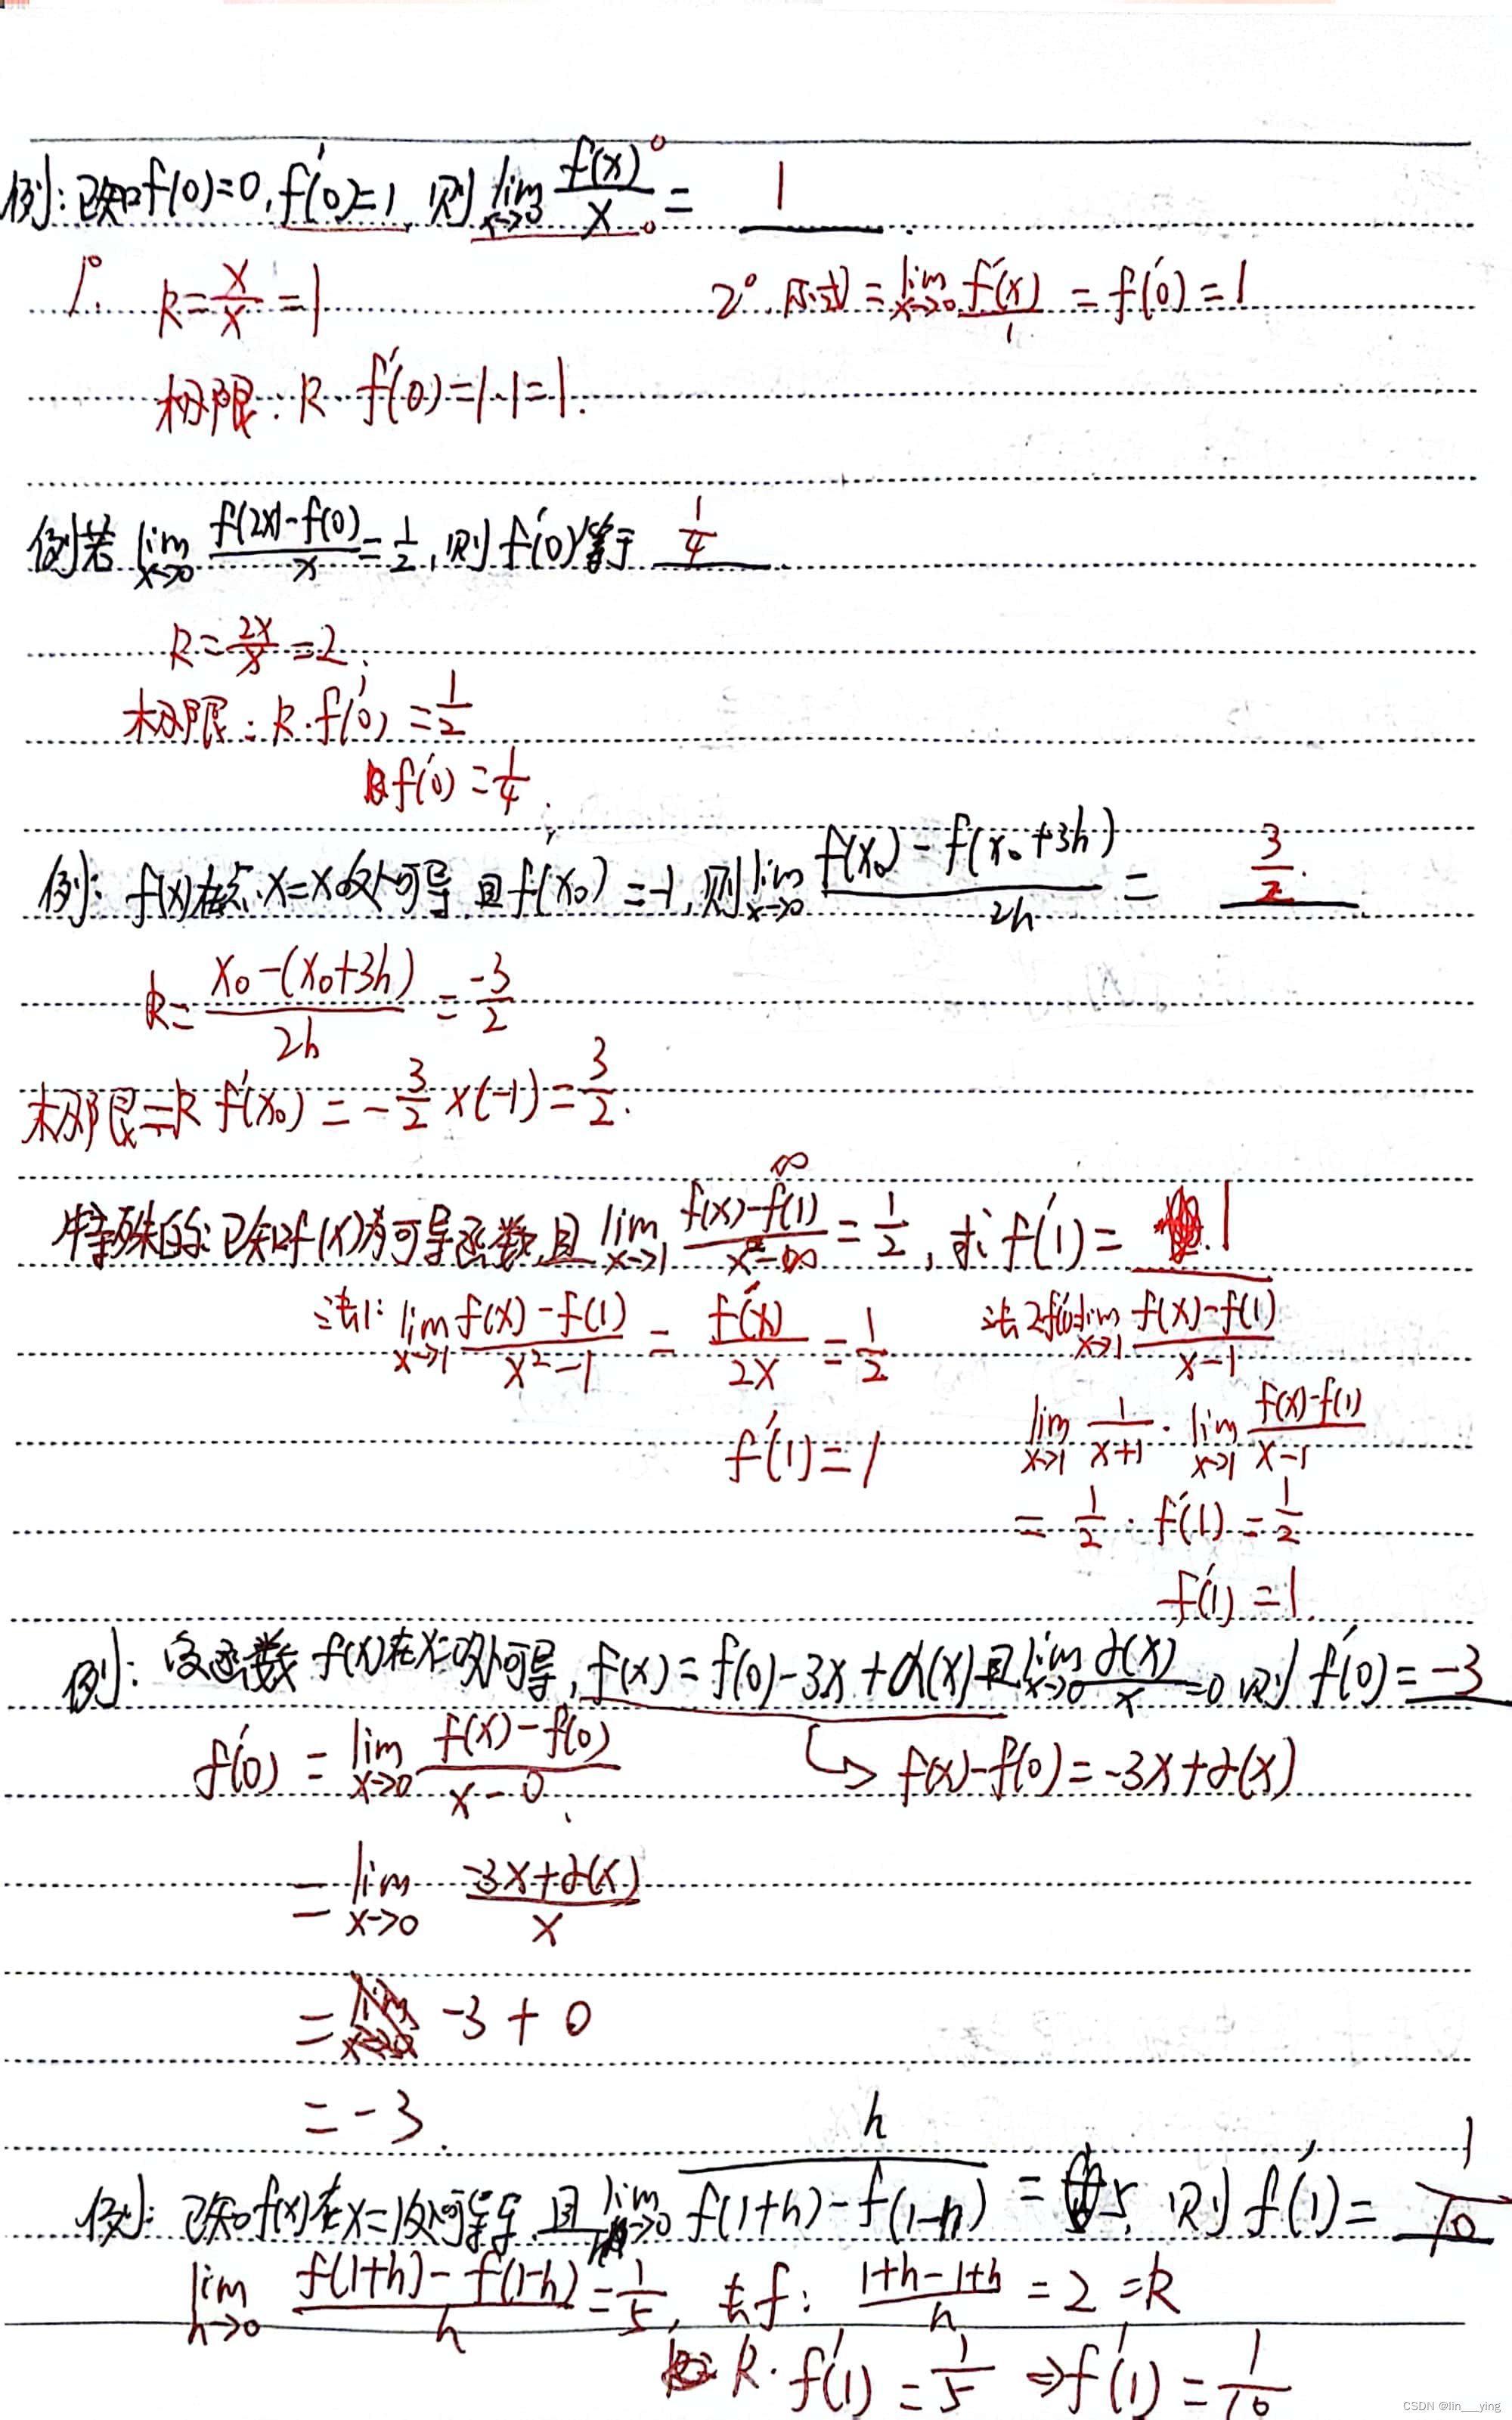 例:已知f(0)=0,f'(0)=1,则lim x→0 f(x)/x = 1
0
0
1°. k=x/x=1 2°.原式=lim x→0 f'(x)/1 = f'(0)=1
极限:k·f'(0)=1·1=1.
例若 lim x→0 (f(2x)-f(0))/x = 1/2,则f'(0)等于 1/4
k=2x/x=2.
极限:k·f'(0)=1/2
f'(0)=1/4.
例:f(x)在点x=x0处可导,且f'(x0)=-1,则lim x→0 (f(x0)-f(x0+3h))/2h = 3/2.
k=(x0-(x0+3h))/2h = -3/2
极限=k f'(x0)=-3/2×(-1)=3/2.
∞
特殊的:已知f(x)为可导函数,且 lim x→1 (f(x)-f(1))/(x²-∞) = 1/2,求f'(1)= 1
法1: lim x→1 (f(x)-f(1))/(x²-1) = f'(x)/2x = 1/2 法2 f'(1)=lim x→1 (f(x)-f(1))/(x-1)
f'(1)=1 lim x→1 1/(x+1) · lim x→1 (f(x)-f(1))/(x-1)
= 1/2 · f'(1) = 1/2
f'(1)=1.
例:设函数f(x)在x=0处可导,f(x)=f(0)-3x+α(x)且lim x→0 α(x)/x=0则f'(0)=-3
f'(0)=lim x→0 (f(x)-f(0))/(x-0) → f(x)-f(0)=-3x+α(x)
=lim x→0 (-3x+α(x))/x
= -3+0
=-3.
例:已知f(x)在x=1处可导,且 lim h→0 h/(f(1+h)-f(1-h)) = 5,则f'(1)= 1/10
lim h→0 (f(1+h)-f(1-h))/h = 1/5, 去f: (1+h-1+h)/h =2=k
k·f'(1)=1/5 ⇒f'(1)=1/10
CSDN @lin___ying